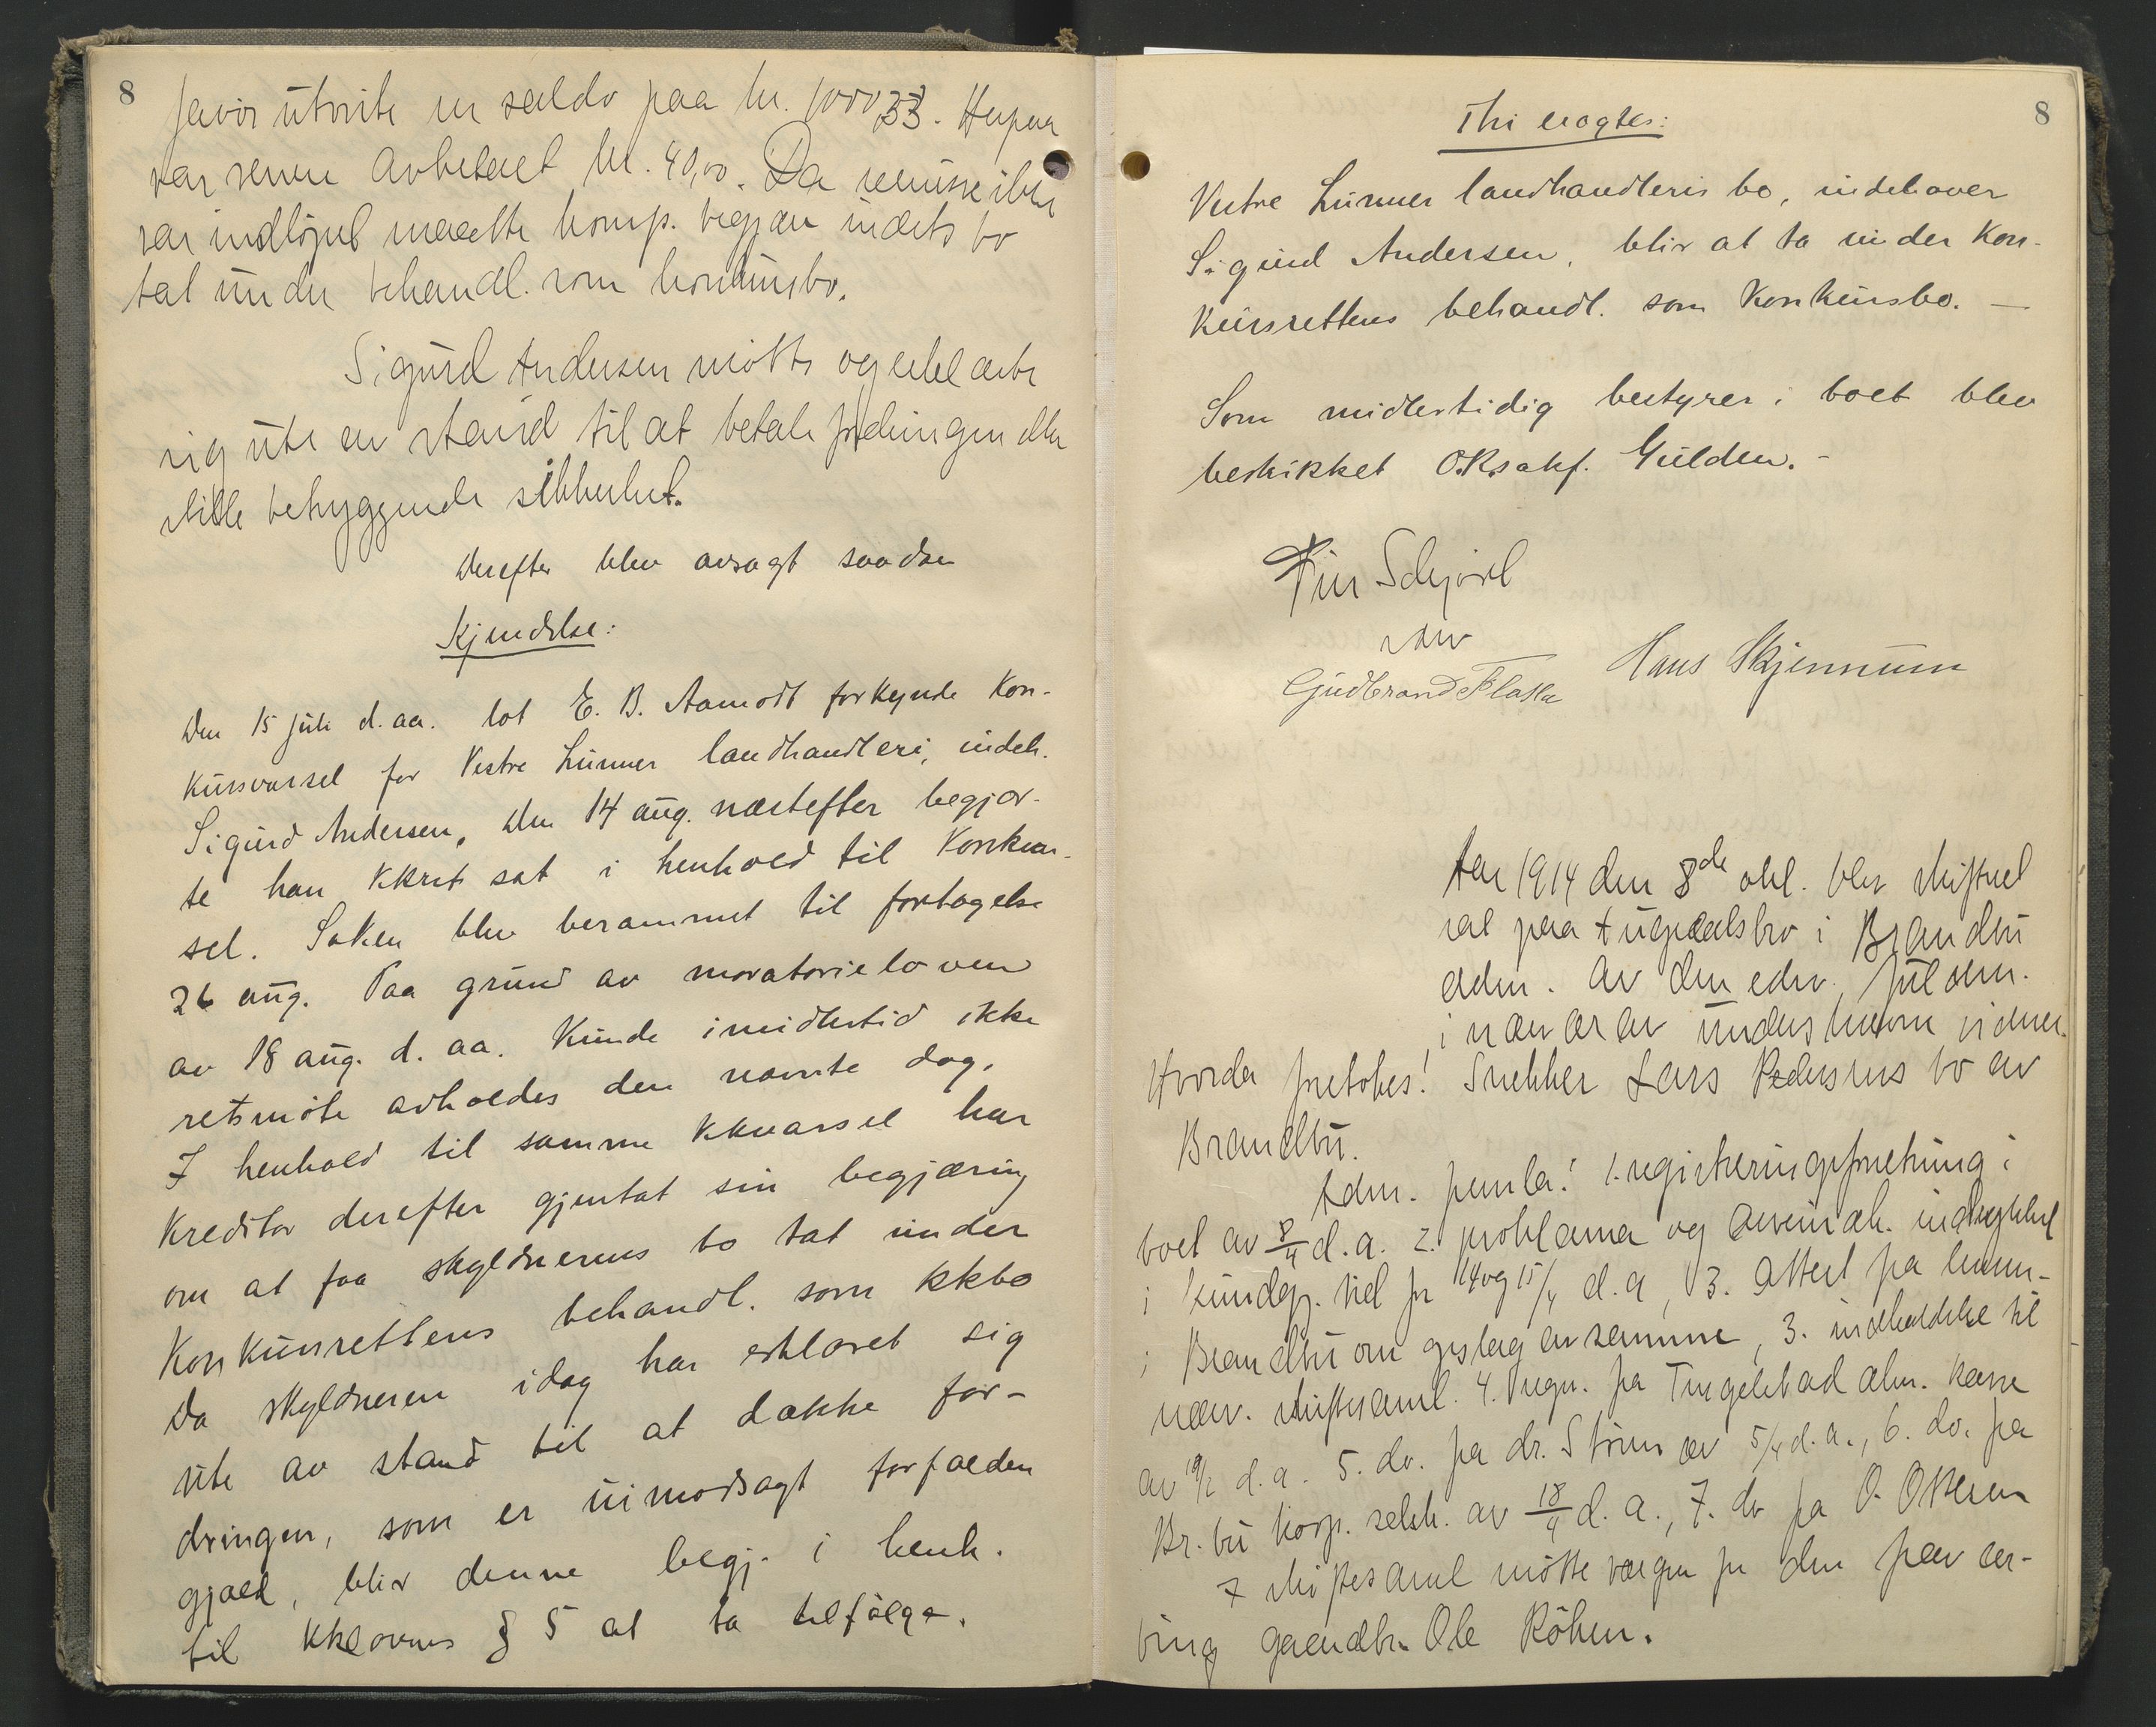 8
hvor utviste en saldo paa kr. 1000,33. Herpaa
var senere avbetalt kr. 40,00. Da remisse ikke
var indløpet maatte komp. begjære indkts bo
tat under behandl. som konkursbo.
Sigurd Andersen møtte og erklærte
sig ute av stand til at betale fordringen eller
stille betryggende sikkerhet.
Derefter blev avsagt saadan
Kjendelse:
Den 15 juli d. aa. lot E. B. Aamodt forkynde Kon-
kursvarsel for Vestre Lunner landhandleri, indeh.
Sigurd Andersen. Den 14 aug. næstefter begjær-
te han kkret sat i henhold til Konkurs-
sel. Saken blev berammet til foretagelse
26 aug. Paa grund av moratorieloven
av 18 aug. d. aa. kunde imidlertid ikke
retsmøte avholdes den nævnte dag.
I henhold til samme kkvarsel har
Kreditor derefter gjentat sin begjæring
om at faa skyldnerens bo tat under
Konkursrettens behandl. som kkbo
Da skyldneren idag har erklæret sig
ute av stand til at dække for-
dringen, som er uimodsagt forfalden
gjæld, blir denne begj. i henh.
til kklovens § 5 at ta tilfølge.
8
Thi eragtes:
Vestre Lunner landhandleris bo, indehaver
Sigurd Andersen, blir at ta under Kon-
kursrettens behandl. som Konkursbo. —
Som midlertidig bestyrer i boet blev
beskikket O.R.sakf. Gulden. -
Finn Schjørl
Gudbrand Flatla Hans Skjennum
Aar 1914 den 8de okt. blev skifteret
sat paa Augedalsbro i Brandbu
adm. av den edsv. fuldm.
i nærvær av underskrevne vidner.
Hvorda foretokes: Snekker Lars Pedersens bo av
Brandbu.
Adm. fremla: 1. registreringsforretning i
boet av 8/4 d.a. 2. proklama og indrykket
i kundgj. tid for 14 og 15/4 d.a, 3. Attest fra lensm-
i Brandbu om opslag av samme, 3. indkaldelse til
nærv. skiftesaml. 4. regn. fra Tingelstad alm. kasse
av 19/2 d.a. 5. do. fra dr. Strøm av 5/4 d.a., 6. do. fra
Br. bu selsk. av 18/4 d.a., 7. do fra O.
I skiftesaml møtte vergen for den fraværende
gaardbr. Ole Røken.